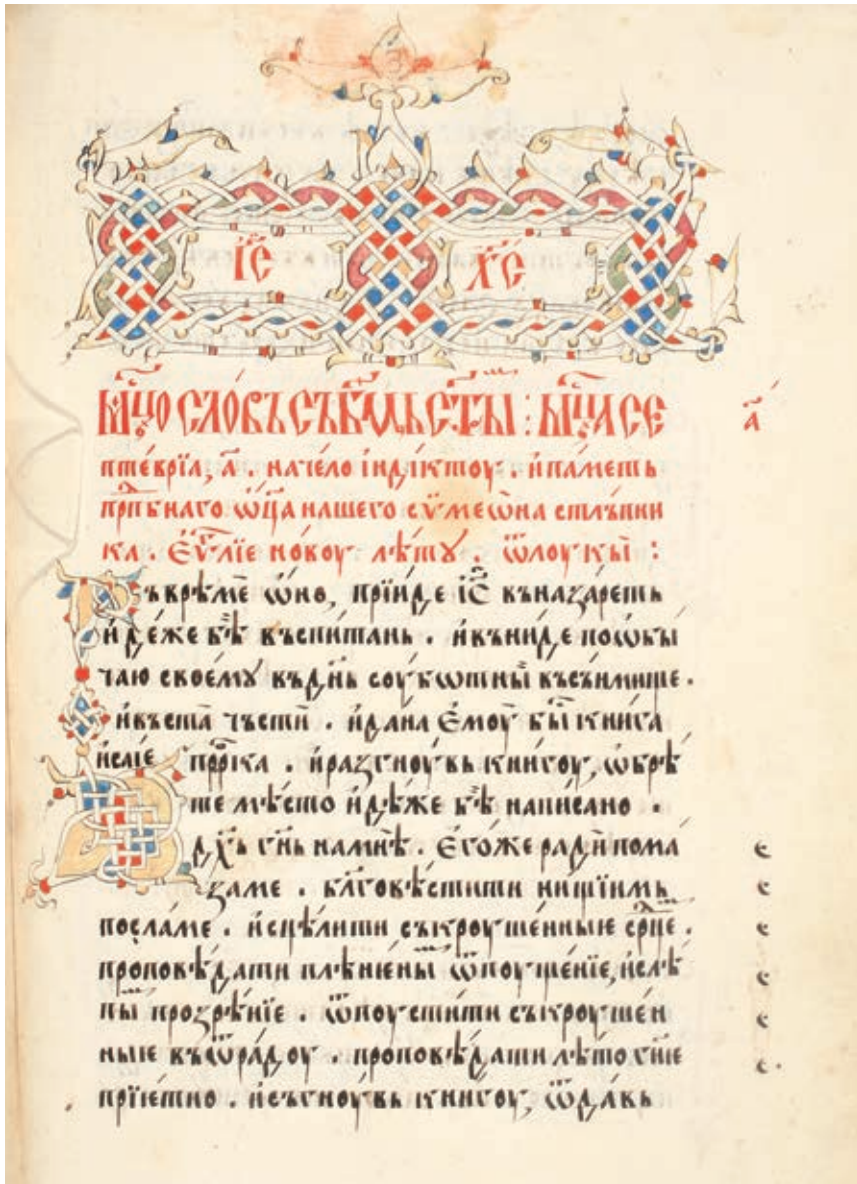 І҃С Х҃С
Мц҃ословь съ б҃мь ст҃ыⷨ : мц҃а се
а҃
птеврїа, а҃ . начело індіктоу . и паметь
прп҃бнаго ѡц҃а нашего сѵмеѡна стлъпни
ка . Еѵ҃лїе новоу лѣтꙋ . ѿ лоукы :
Въ врѣме ѡно, прїиде І҃С въ назареть
идѣже бѣ въспитань . и въниде по ѡбы
чаю своемꙋ въ дн҃ь соуботны въ сънмище .
и въста чьсти . и дана емоу бы книга
исаїе прⷪ҇рка . и разгноувь книгоу, ѡбрѣ
те мѣсто идѣже бѣ написано .
Дх҃ь гн҃ь на мнѣ . егоже ради пома
ꙁа ме . благовѣстити нищїимь
посла ме . исцѣлити съкроушенные срⷣце .
проповѣдати плѣненыⷨ ѿпоущенїе, и слѣ
пыⷨ проꙁрѣнїе . ѿпоустити съкроушен
ные въ ѿрадоу . проповѣдати лѣто гн҃е
прїетно . и съгноувь книгоу, ѿдавь